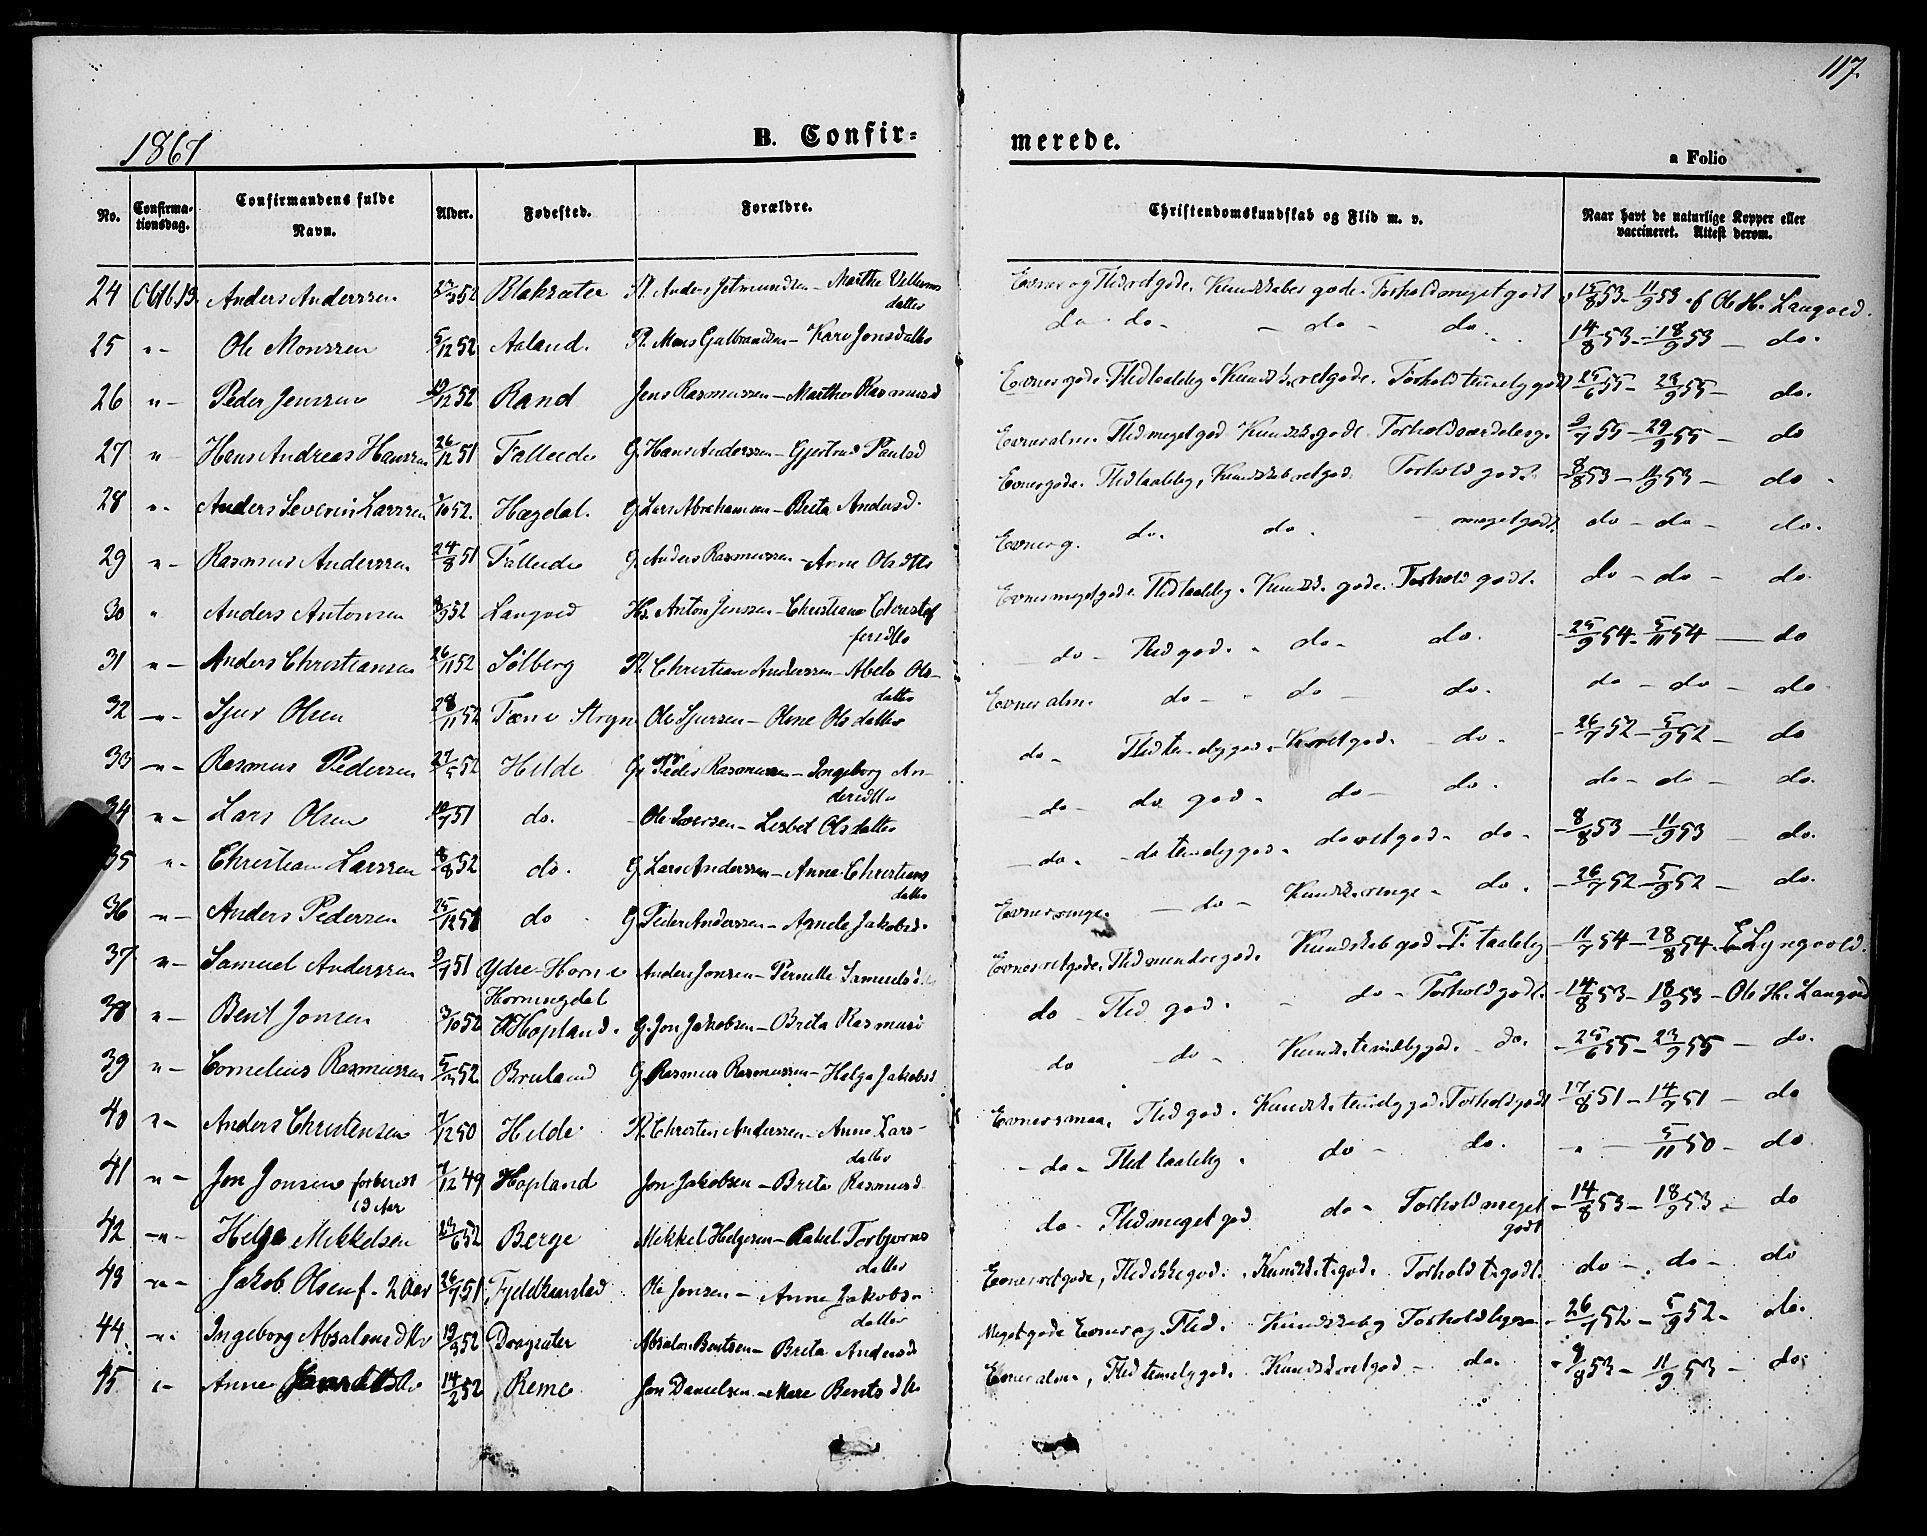 117.
1867
B. Confir=
merede.
a Folio
No.
Confirma-
tionsdag.
Confirmandens fulde
Navn.
Alder.
Fødested.
Forældre.
Christendomskundskab og Flid m. v.
Naar havt de naturlige Kopper eller
vaccineret. Attest derom.
24 Octb. 13. Anders Anderssen 52 Blaksæter Pl. Anders Jetmundsen - Marthe Villums
datter
Evner og Flid ret gode. Kundskaber gode. Forhold meget godt 15/8 53 - 11/9 53 af Ole H. Langved.
25 " - Ole Monssen 5/12 52 Aaland. Pl. Mons Gulbrandsen - Kari Jonsdatter
do - do - - do - do. 14/8 53 - 18/9 53 - do.
26 " - Peder Jenssen 12 52 Rand Jens Rasmussen - Marthe Rasmusd
Evner gode. Flid taalelig. Kundsk. ret gode. Forhold temelig godt 25/6 55 - 23/9 55 - do.
27 " - Hans Andreas Hanssen 26/12 51 Falleide G. Hans Anderssen - Gjertrud Paulsd
Evner alm. Flid meget god Kundsk. gode Forhold særdeles g. 9/7 55 - 29/9 55 - do
28 " - Anders Severin Larssen 10 52. Hægdal. G. Lars Abrahamsen - Brita Andersd.
Evner gode. Flid taalelig, Kundskab ret god. Forhold godt. 8/8 53 - 11/9 53 - do -
29 " - Rasmus Anderssen 24/8 51 Falleide G. Anders Rasmussen - Anne Olsdtr
Evner g. do. do. - meget godt. do - do - do.
30 " Anders Antonsen 52 Langved Hs. Anton Jenssen - Christiane Christof
fersdtr
Evner meget gode. Flid taalelig. Kundsk. gode. Forhold godt. do - do - do.
31 " - Anders Christiansen 26/11 52 Solberg Pl. Christian Anderssen - Abelo Ols-
datter
- do - Flid god. - do - do. 25/9 54 - 5/11 54 - do
32 - " - Sjur Olsen 28/11 52 Tæne Stryn Ole Sjurssen - Oline Olsdatter
Evner alm. do - - do - do. do - do - do
33 - " - Rasmus Pederssen 27/5 52 Helde G. Peder Rasmussen - Ingeborg An-
dersdtr
do - Flid temelig god - K. ret god - - do - 26/7 52 - 5/9 52 - do
34 " - Lars Olsen 7 51 do. Ole Iversen - Lisbet Olsdatter
- do - do god - do - do. do - do - do.
35 " - Christian Larssen 8/8 52 do. G. Lars Anderssen - Anne Christians
datter
- do - - do temelig god - do ret god - do - 8/8 53 - 11/9 53 - do.
36 - " - Anders Pederssen 25/12 51 do G Peder Anderssen - Agnete Jakobsd.
Evner ringe. - do - Kundsk. ringe - do. 26/7 52 - 5/9 52 - do.
37 " - Samuel Anderssen 9/7 51 Ydre-Horne Anders Jonsen - Pernille Samuelsd
Evner ret gode. Flid mindre god. Kundskab god - F. taalelig - 11/7 54 - 28/8 54 - E Lyngvold.
38 " - Bent Jonsen 3/10 52 Horningdal
Hopland. G. Jon Jakobsen - Brita Rasmusd
do - Flid god. - do - Forhold godt. 14/8 53 - 18/9 53 - Ole H. Langved
39 " - Cornelius Rasmussen 52 Bruland G. Rasmus Rasmussen - Helga Jakobsd
do - do - Kundsk. temelig god. - do. 25/6 55 - 23/9 55 - do.
40 " - Anders Christensen 12 50 Helde Pl. Christen Anderssen - Anne Lars-
datter
Evner smaa. Flid god. Kundsk. temelig god. Forhold godt 17/8 51 - 14/9 51 - do
41 " - Jon Jonsen forberedt
12 49 Hopland Jon Jakobsen - Brita Rasmusd
- do - Flid taalelig - do - do. " - 5/11 50 - do
42 - " - Helge Mikkelsen 52 Berge Mikkel Helgesen - Rakel Torbjørns
datter
do - Flid meget god do - Forhold meget
godt
14/8 53 - 18/9 53 - do
43 - " - Jakob Olsen f. 2 Aar 26/7 51 Fjeldkarstad Ole Jonsen - Anne Jakobs-
datter
Evner ret gode, Flid ikke god. Kundsk. t. god. Forhold t. godt. do - do - do
44 " - Ingeborg Absalonsdtr 52 Dragsæter Absalon Bentsen - Brita Andersd
Meget gode Evner og Flid. Kundskab og Forhold ligesaa 26/7 52 - 5/9 52 - do.
45 " - Anne Jonsdtr 14/2 52 Reme Jon Danielsen - Mari Bentsdtr
Evner alm., Flid temelig god. Kundsk. ret god - do. 8/8 53 - 11/9 53 - do.